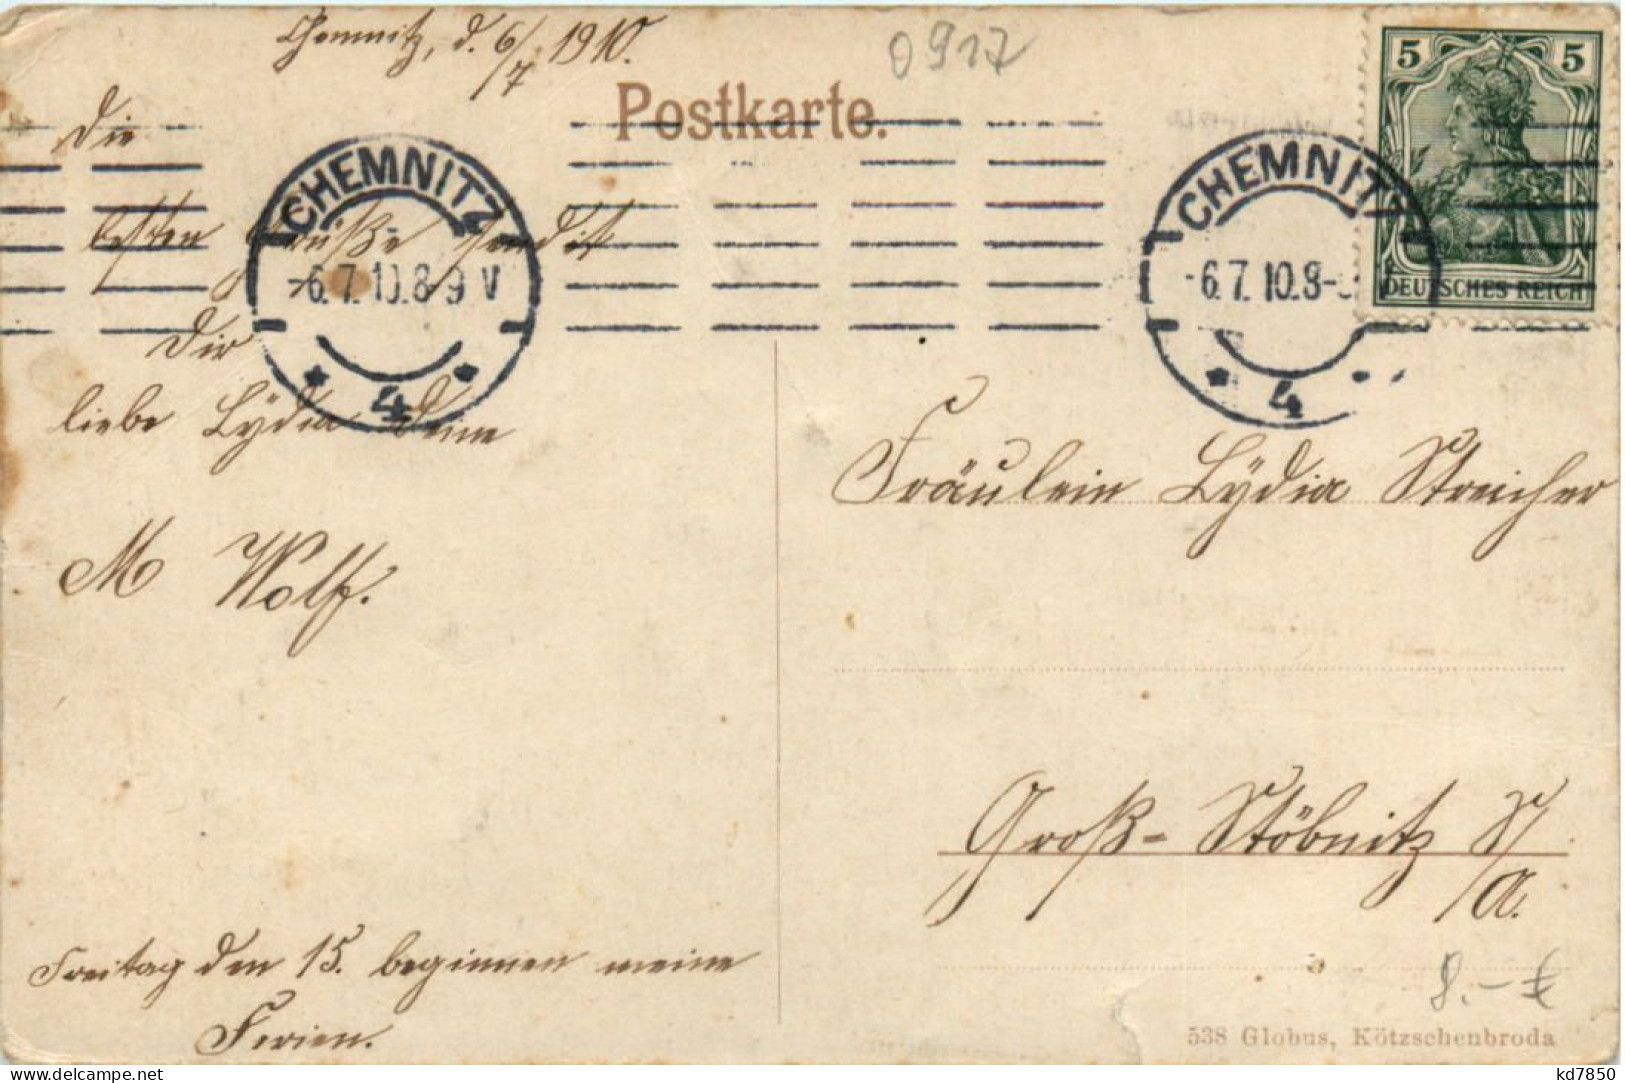 Chemnitz, d. 6/7. 1910.
0917
Postkarte.
Die
besten Grüße sendet
Dir
liebe Lydia Deine
M Wolf.
Freitag den 15. beginnen meine
Ferien.
CHEMNITZ
-6.7.10.8-9 V
* 4 *
CHEMNITZ
-6.7.10.8-
* 4 *
5 5
DEUTSCHES REICH
Fräulein Lydia Streicher
Groß-Stöbnitz S/
A.
8.- €
538 Globus, Kötzschenbroda
kd7850